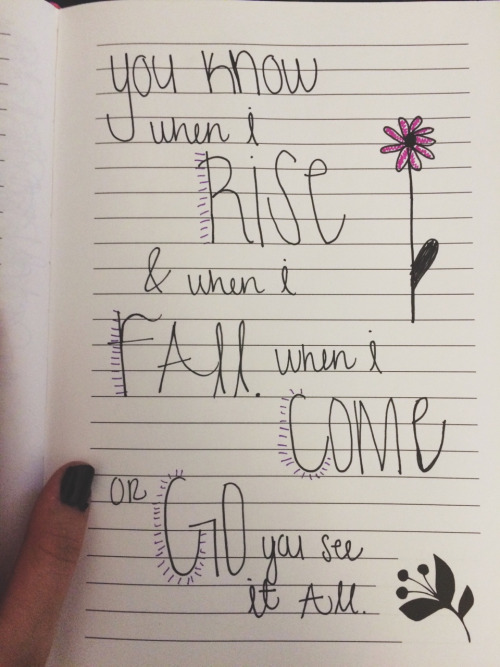 you know
when i
RiSe
& when i
FAll. when i
COMe
or GO you see
it All.